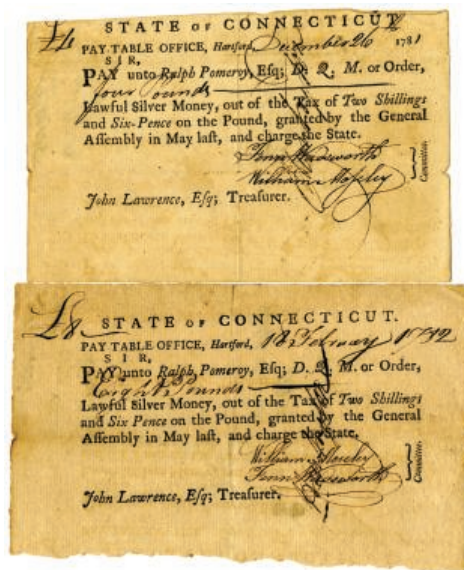 £4 STATE OF CONNECTICUT
PAY TABLE OFFICE, Hartford, December 26th 1781
SIR,
PAY unto Ralph Pomeroy, Esq; D. Q. M. or Order,
four Pounds
Lawful Silver Money, out of the Tax of Two Shillings
and Six-Pence on the Pound, granted by the General
Assembly in May last, and charge the State.
Fenn Wadsworth
William Moseley
Committee.
John Lawrence, Esq; Treasurer.
£8 STATE OF CONNECTICUT.
PAY TABLE OFFICE, Hartford, 18 Februay 1782
SIR,
PAY unto Ralph Pomeroy, Esq; D. Q. M. or Order,
Eight Pounds
Lawful Silver Money, out of the Tax of Two Shillings
and Six Pence on the Pound, granted by the General
Assembly in May last, and charge the State.
William Moseley
Fenn Wadsworth
Committee.
John Lawrence, Esq; Treasurer.